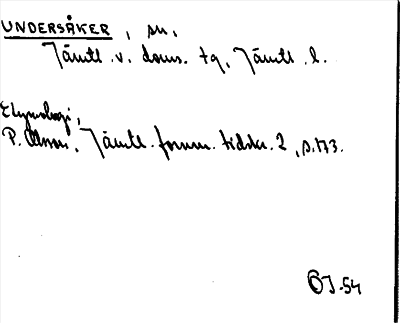 UNDERSÅKER, sn.
Jämtl. v. doms. tg, Jämtl. l.
Etymologi,
P. Olsson, Jämtl. fornm. tidskr. 2, s. 173.
OJ-54